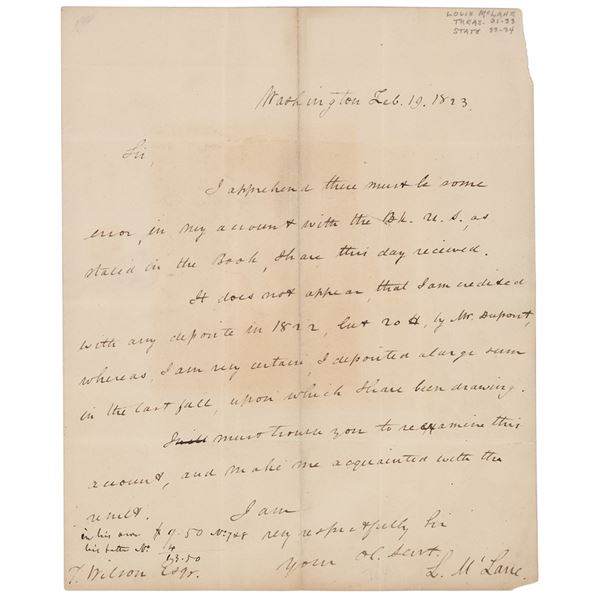 LOUIS McLANE
TREAS. 31-33
STATE 33-34
Washington Feb. 19. 1823.
Sir,
I apprehend there must be some
error, in my account with the Bk. U. S, as
stated in the Book, I have this day received.
It does not appear, that I am credited
with any deposite in 1822, but 20 , by Mr. Dupont,
whereas, I am very certain, I deposited a large sum
in the last fall, upon which I have been drawing.
I must trouble you to reexamine this
account, and make me acquainted with the
result.
I am
very respectfully Sir
your ob. Servt
L. McLane.
in his own $9.50 No. 748
his better No. 14
63.50
T. Wilson Esqr.